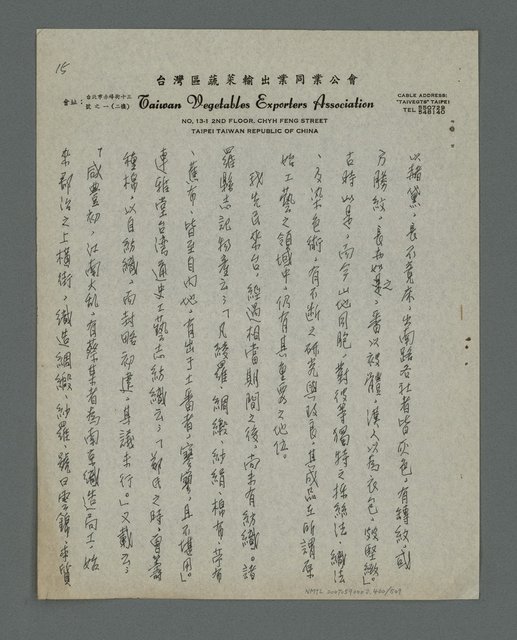 15
台灣區蔬菜輸出業同業公會
會址：台北市赤峰街十三號之一（二樓）
Taiwan Vegetables Exporters Association
NO. 13-1 2ND FLOOR, CHYH FENG STREET
TAIPEI TAIWAN REPUBLIC OF CHINA
CABLE ADDRESS:
"TAIVEGTS" TAIPEI
TEL 550729
546140
以豬鬃，長不竟床，出南路各社者皆灰色，有縛紋或
方勝紋，長亦如之，番以被體，漢人以為衣包，頗堅緻」。
古時如是，而今山地同胞，對彼等獨特之採絲法、織法
、及染色術，有不斷之研究與改良，其成品在所謂原
始工藝之領域中，仍有其重要之地位。
我先民來台，經過相當期間之後，尚未有紡織。諸
羅縣志記物產云：「凡綾羅、綢緞、紗絹、棉布、苧布
、蕉布，皆至自內地，有出于土番者，寥寥，且不堪用」。
連雅堂台灣通史工藝志紡織云：「鄭氏之時，曾籌
種棉，以自紡織，而封略初建，其議未行。」又載云：
「咸豐初，江南大亂，有蔡某者為南京織造局工，始
來郡治之上橫街，織造綢緞、紗羅，號曰雲錦，本質
NMTL 20070590002 400/509